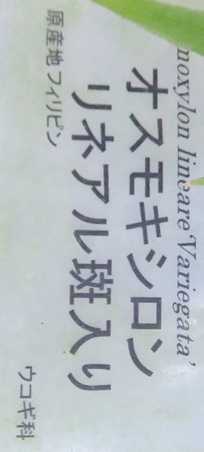 noxylon lineare 'Variegata'
オスモキシロン
リネアル斑入り
原産地フィリピン
ウコギ科